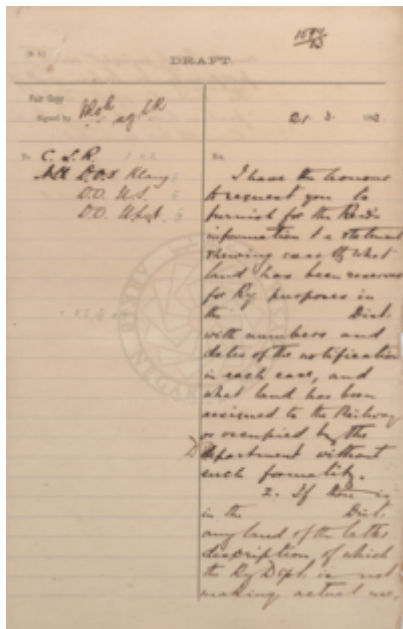 DRAFT.
Fair Copy
Signed by
21 3
To C.L.R
Sir,
All D.O.s Klang
D.O. U.S.
I have the honour
to request you to
furnish for the Res's
information a statement
shewing case by what
land has been reserved
for Ry purposes in
the Dist.
with numbers and
dates of the notification
in each case, and
what land has been
assigned to the Railway
or occupied by the
Department without
such formality.
2. If there is
in the Dist.
any land of the latter
description, of which
the Ry Dept. is not
making actual use,
ARKIB
NEGARA